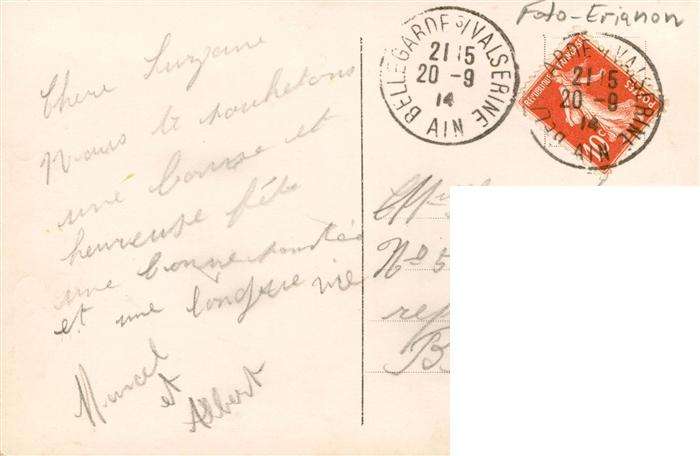 Chere Suzanne
Nous te souhetons
une bonne et
heureuse fête
une bonne santée
et une longue vie
Marcel
et
Albert
BELLEGARDE S/VALSERINE
21 15
20 -9
14
AIN
Foto-Erignon
RÉPUBLIQUE FRANÇAISE
POSTES
10c
BELLEGARDE S/VALSERINE
21 15
20 -9
14
AIN
No 5
B